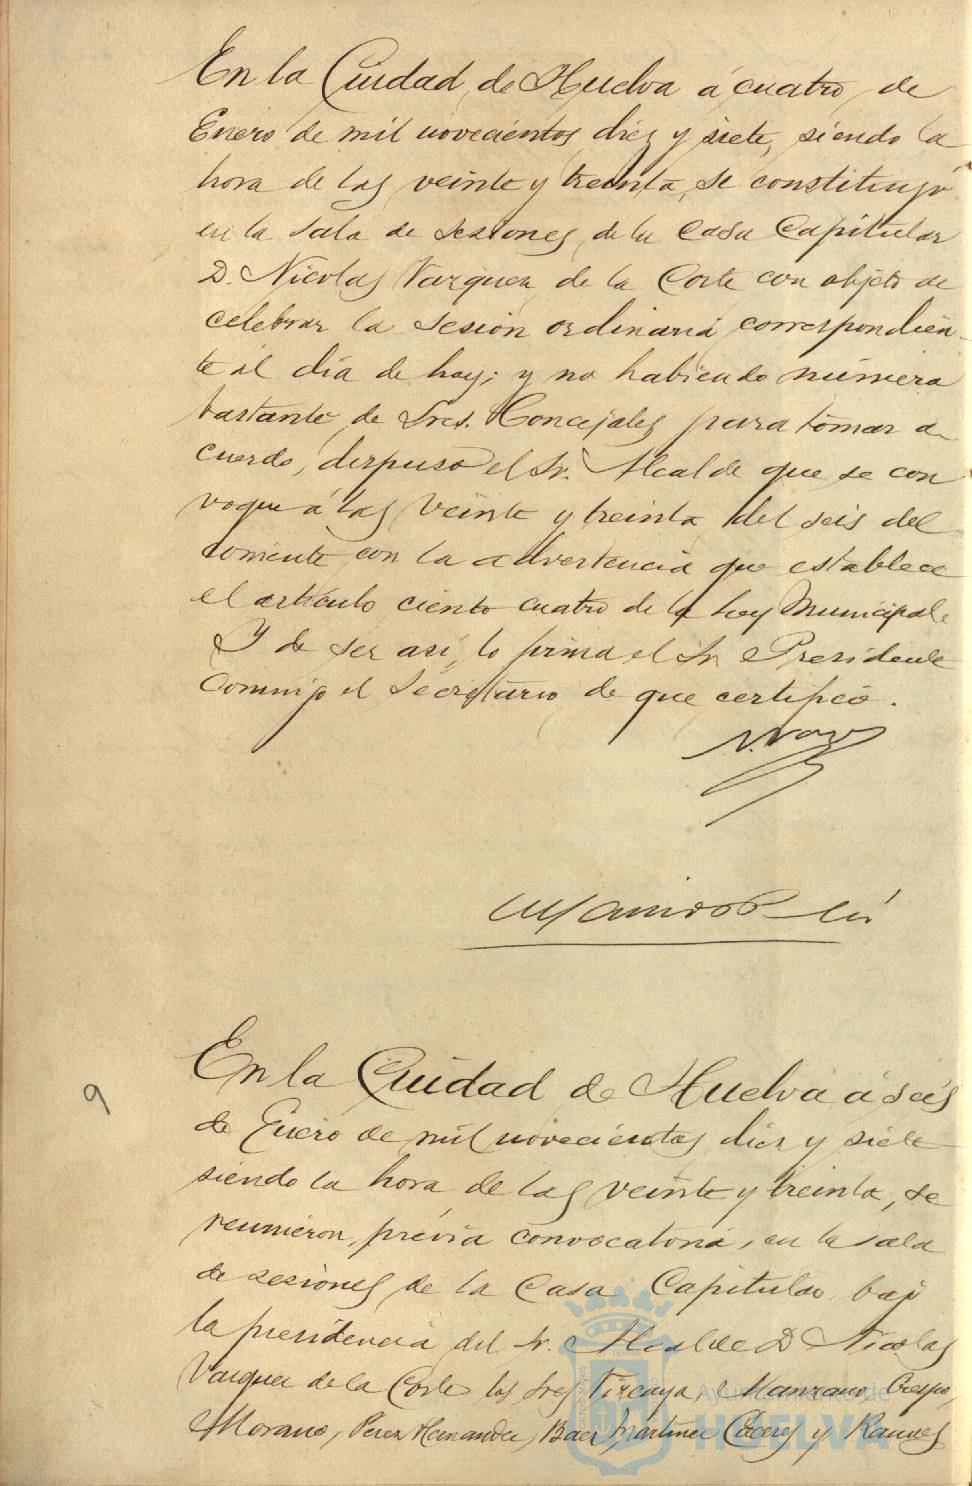 En la Ciudad de Huelva á cuatro de
Enero de mil novecientos diez y siete, siendo la
hora de las veinte y treinta, se constituyó
en la sala de sesiones de la Casa Capitular
D. Nicolas Vazquez de la Corte con objeto de
celebrar la sesión ordinaria correspondien-
te al día de hoy; y no habiendo número
bastante de Sres. Concejales para tomar a-
cuerdo, dispuso el Sr. Alcalde que se con
voque á las veinte y treinta del seis del
corriente con la advertencia que establece
el artículo ciento cuatro de la Ley Municipal.
Y de ser así, lo firma el Sr Presidente
conmigo el Secretario de que certifico.
N. Vazq
En la Ciudad de Huelva á seis
9
de Enero de mil novecientos diez y siete
siendo la hora de las veinte y treinta, se
reunieron, prévia convocatoria, en la sala
de sesiones de la Casa Capitular bajo
la presidencia del Sr. Alcalde D Nicolas
Vazquez de la Corte los Sres Vizcaya, Manzano, Crespo,
Morano, Perez Hernandez, Baez, Martinez Cáceres y Ramos
Ayuntamiento de
HUELVA